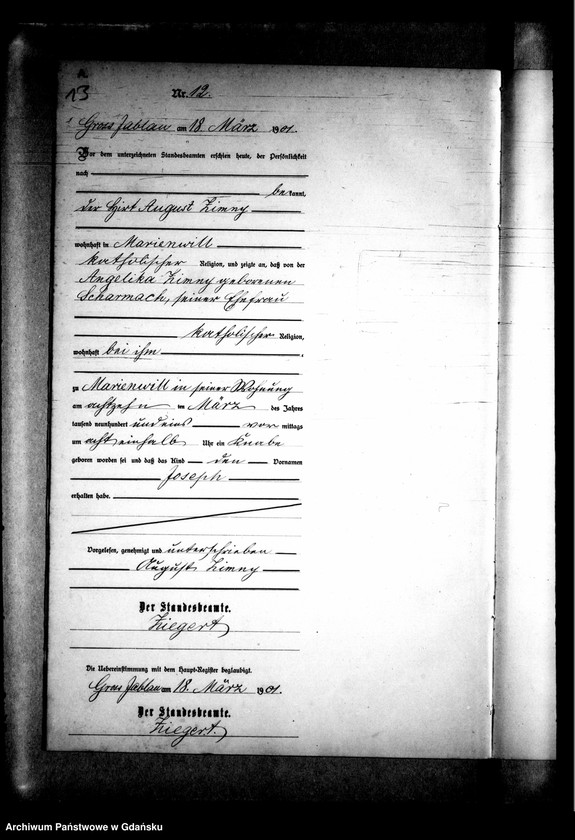 13
Nr. 12.
Gross Jablau am 18 März 1901.
Vor dem unterzeichneten Standesbeamten erschien heute, der Persönlichkeit
nach
bekannt,
der Hirt August Zimny
wohnhaft in Marienwill
katholischer Religion, und zeigte an, daß von der
Angelika Zimny geborenen
Scharmach, seiner Ehefrau
katholischer Religion,
wohnhaft bei ihm
zu Marienwill in seiner Wohnung
am achtzehn ten März des Jahres
tausend neunhundert und eins vor mittags
um acht einhalb Uhr ein Knabe
geboren worden sei und daß das Kind den Vornamen
Joseph
erhalten habe.
Vorgelesen, genehmigt und unterschrieben
August Zimny
Der Standesbeamte.
Ziegert
Die Uebereinstimmung mit dem Haupt-Register beglaubigt.
Gross Jablau am 18. März 1901.
Der Standesbeamte.
Ziegert.
Archiwum Państwowe w Gdańsku